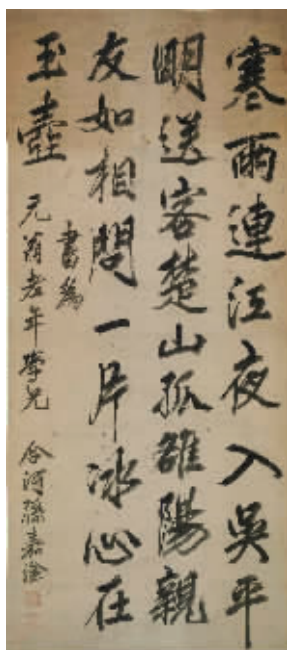 寒雨連江夜入吳平
明送客楚山孤雒陽親
友如相問一片冰心在
玉壺
書為
元翁老年學兄 合河孫嘉淦